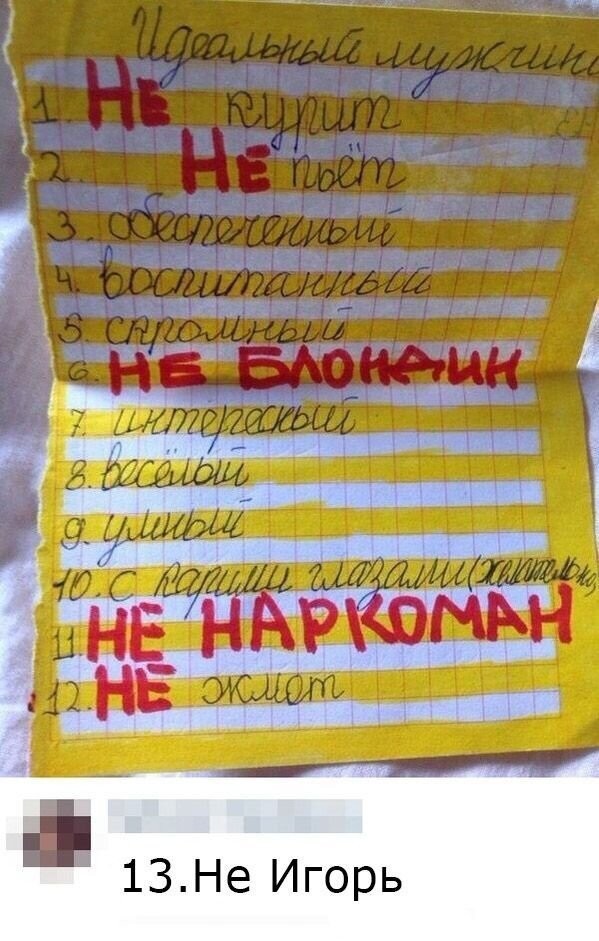 Идеальный мужчина
1. НЕ курит
2. НЕ пьёт
3. обеспеченный
4. Воспитанный
5. скромный
6. НЕ БЛОНДИН
7. интересный
8. весёлый
9. умный
10. с карими глазами (желательно)
11 НЕ НАРКОМАН
12. НЕ жмот
13.Не Игорь